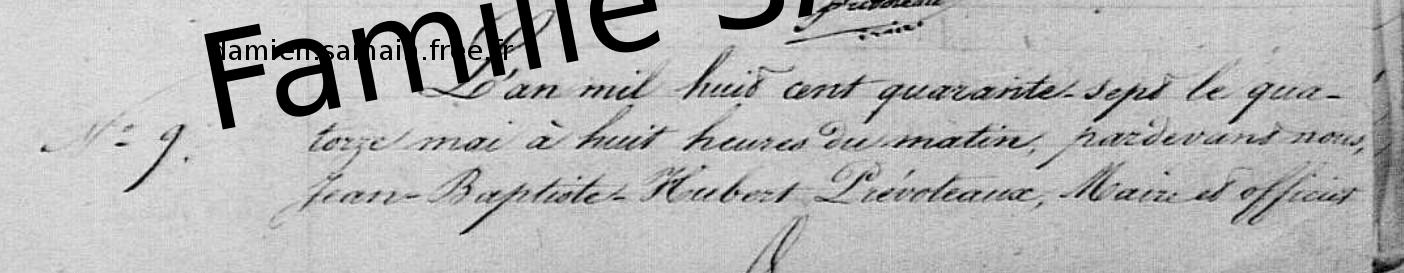 Famille
damien.samain.free.fr
L'an mil huit cent quarante-sept le qua-
N° 9.
torze mai à huit heures du matin, pardevant nous,
Jean-Baptiste-Hubert Prévoteaux, Maire et officier